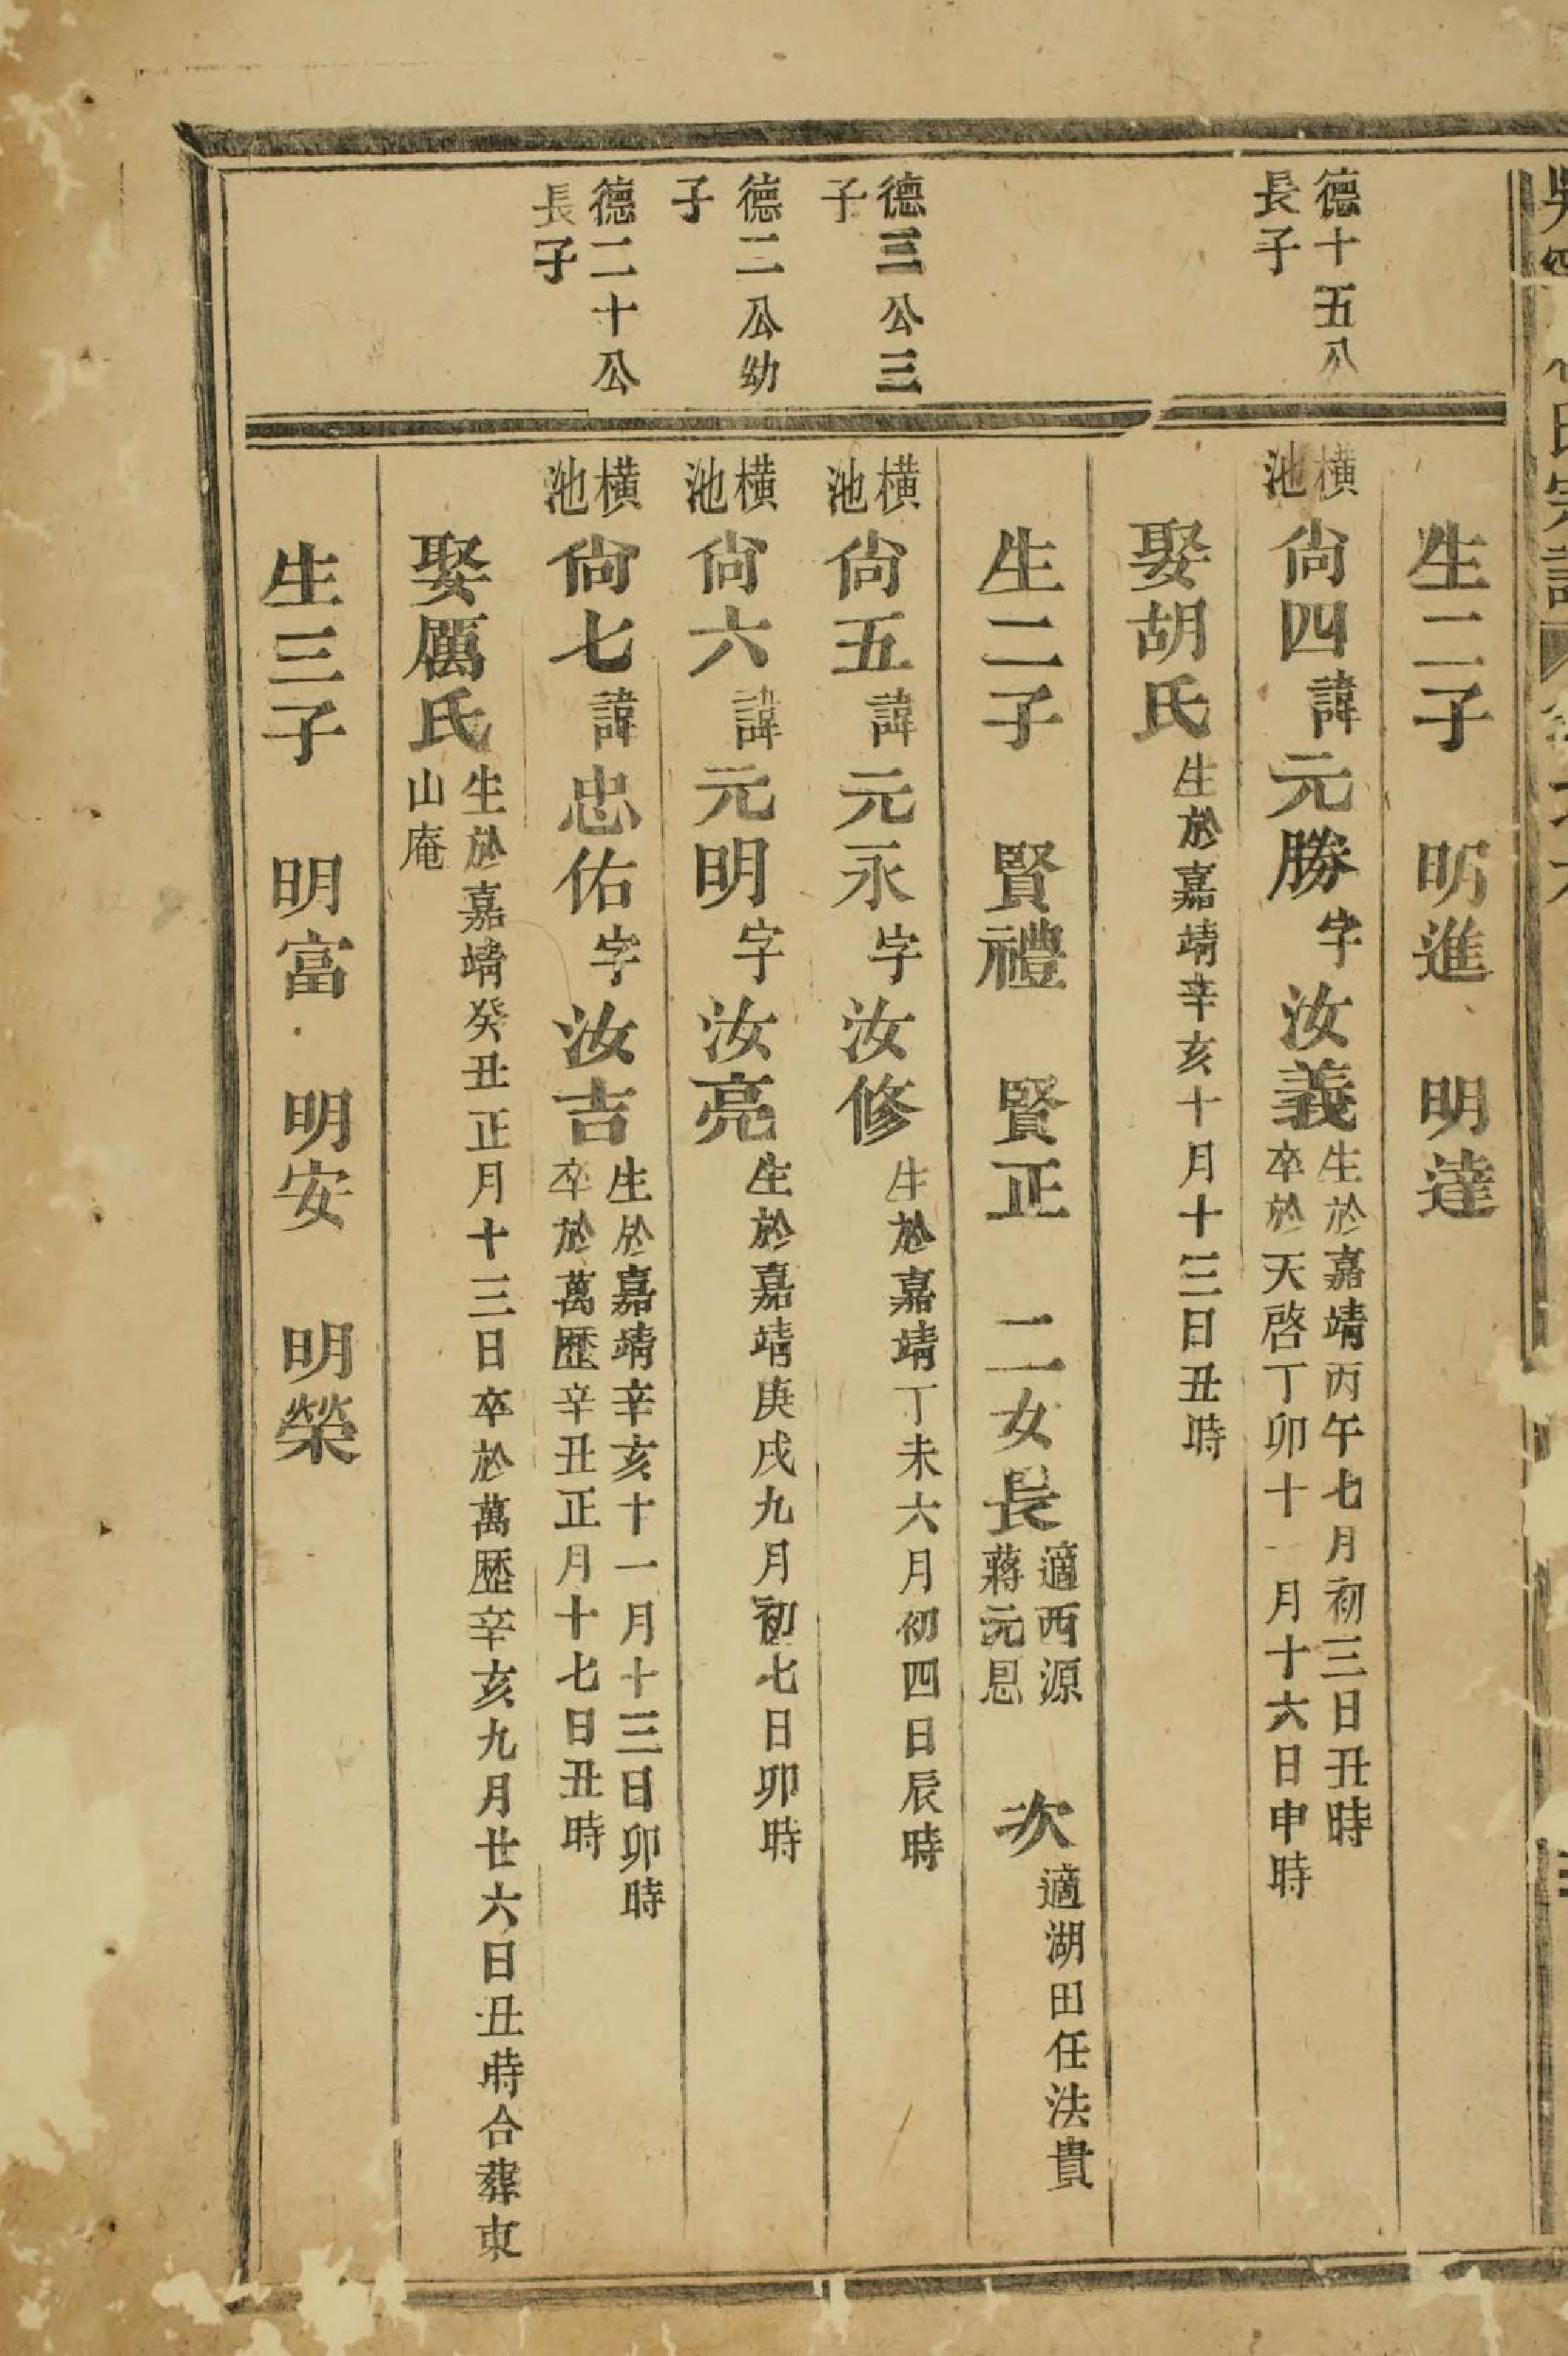 氏宗譜
生二子 明進 明達
德十五公
長子
橫池尙四諱元勝字汝義生於嘉靖丙午七月初三日丑時
卒於天啓丁卯十一月十六日申時
娶胡氏生於嘉靖辛亥十月十三日丑時
生二子 賢禮 賢正 二女長適西源蔣元恩 次適湖田任法貴
德三公三
子
橫池尙五諱元永字汝修生於嘉靖丁未六月初四日辰時
德二公幼
子
橫池尙六諱元明字汝亮生於嘉靖庚戌九月初七日卯時
德二十公
長子
橫池尙七諱忠佑字汝吉生於嘉靖辛亥十一月十三日卯時
卒於萬歷辛丑正月十七日丑時
娶厲氏生於嘉靖癸丑正月十三日卒於萬歷辛亥九月廿六日丑時合葬東
山庵
生三子 明富 明安 明榮